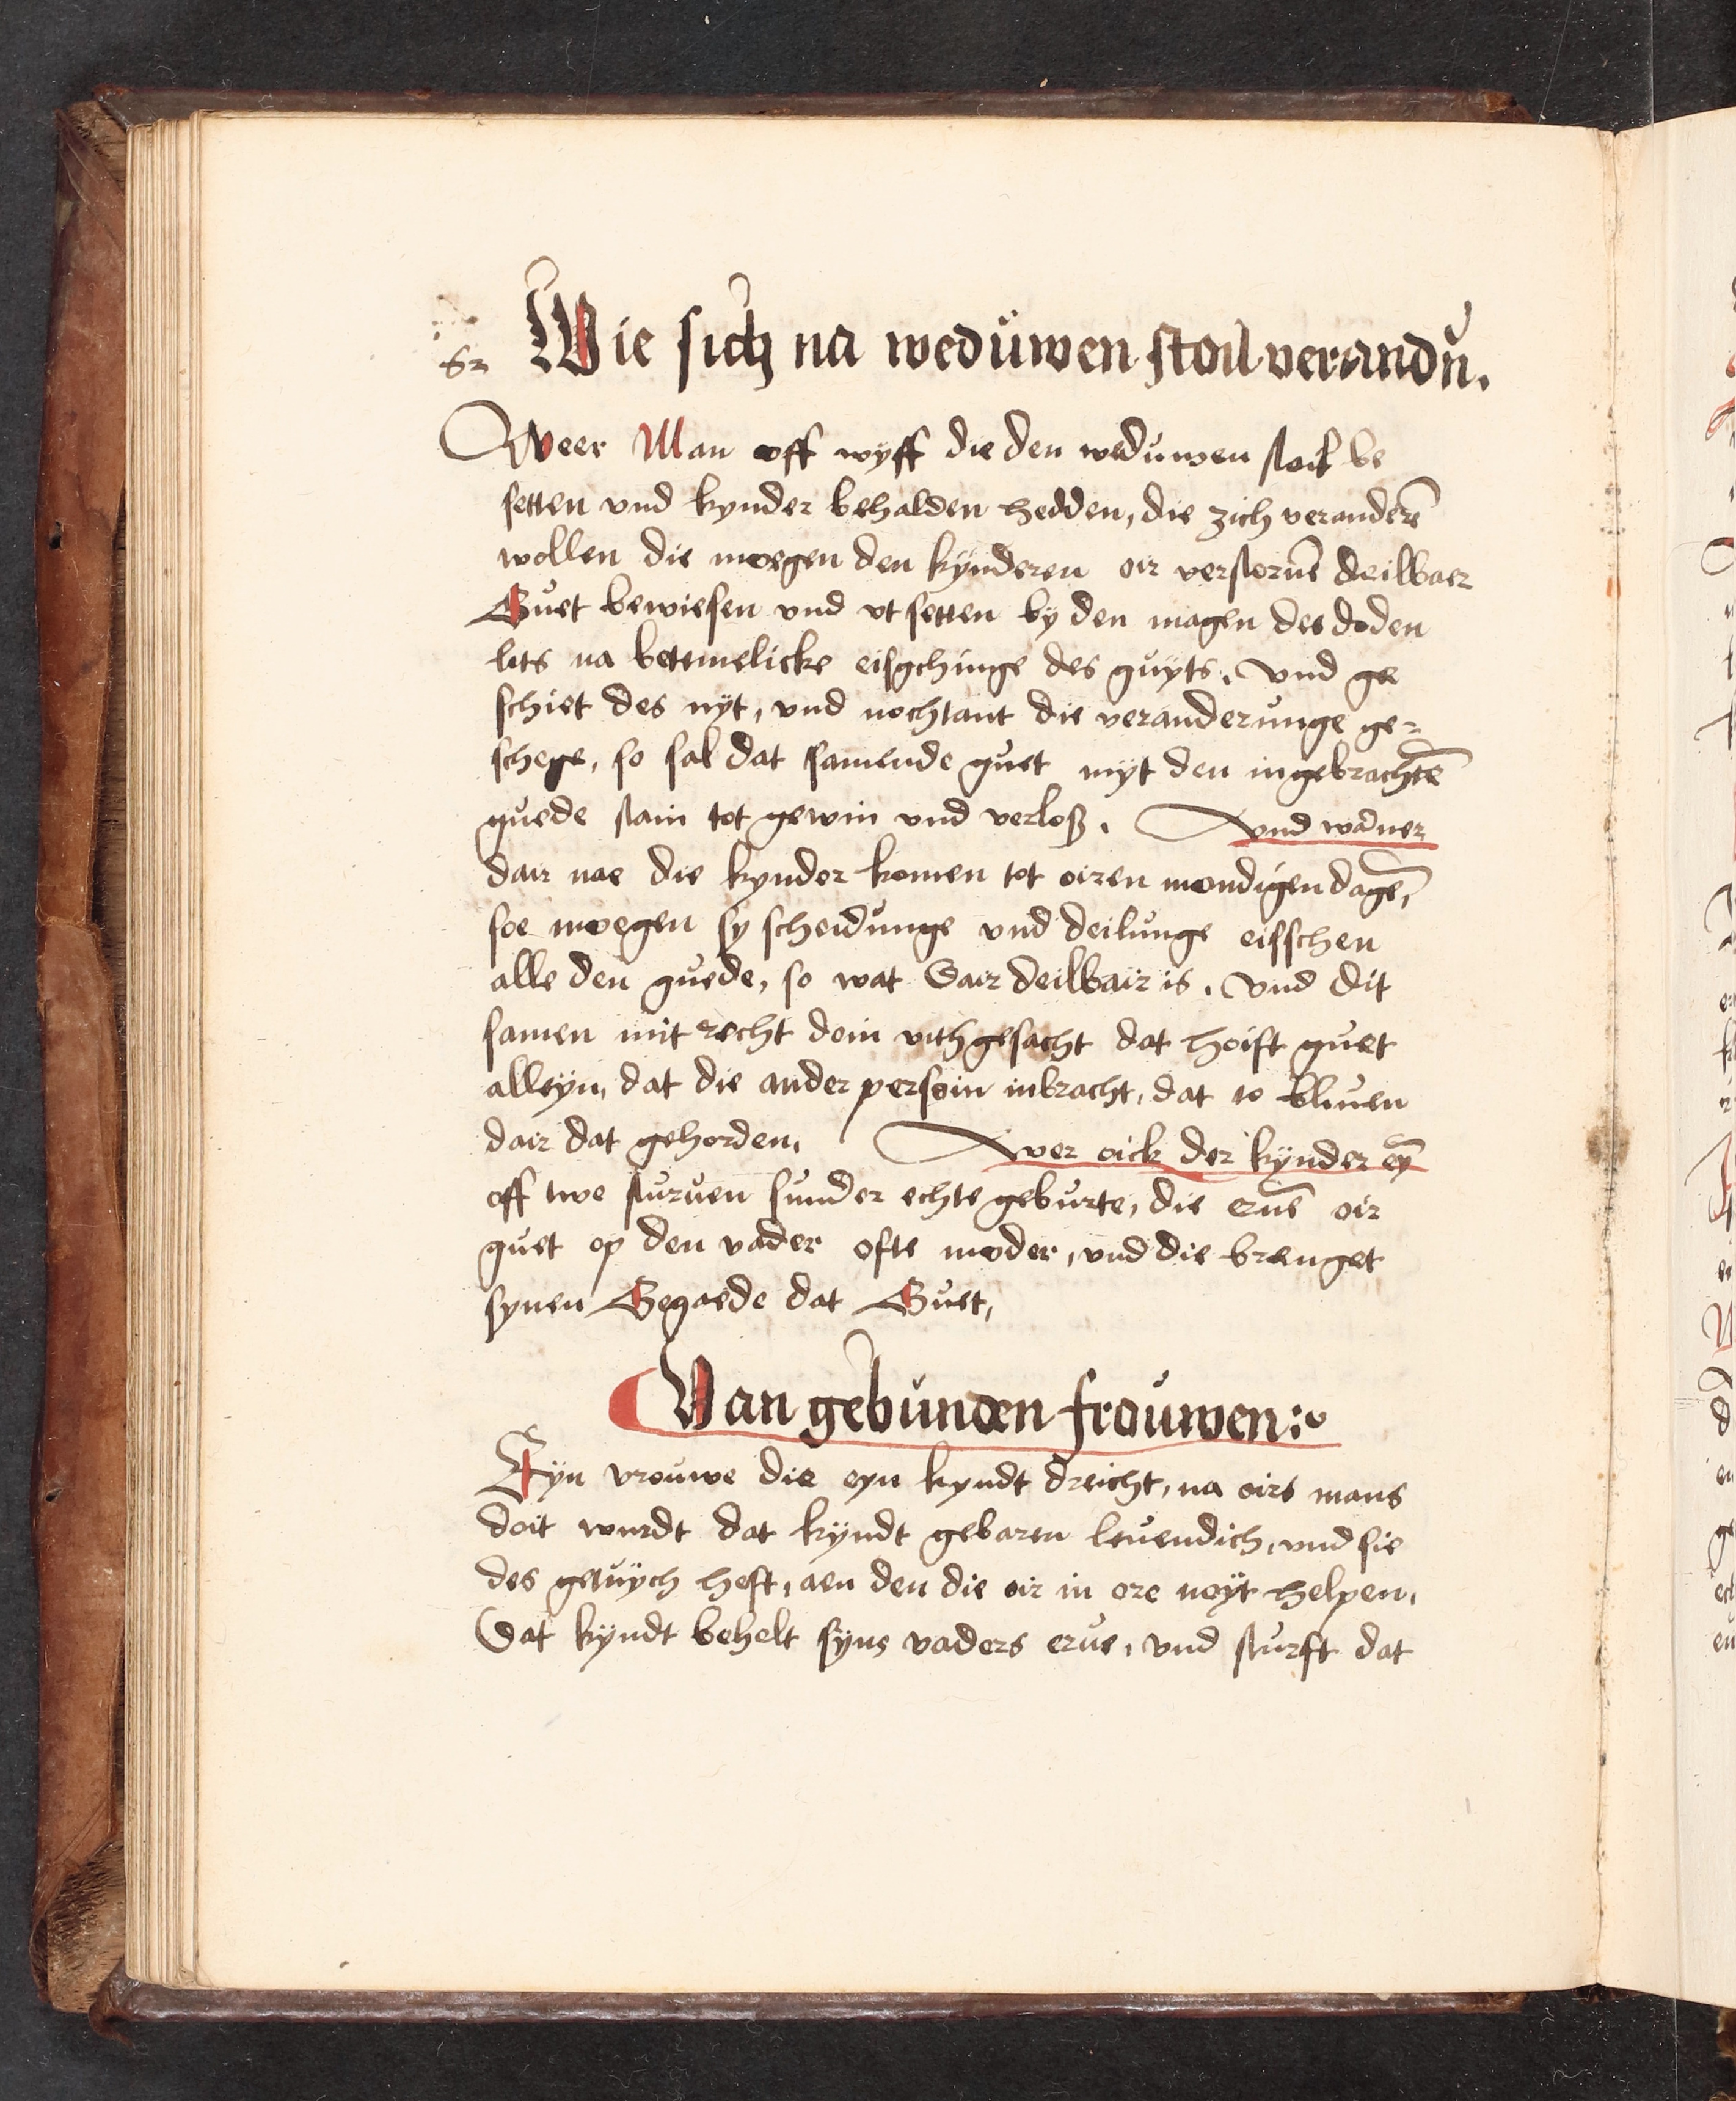 62 Wie sich na weduwen stoil verandn̄.
Weer Man off wyff die den weduwen stoil be
setten vnd kynder behalden hedden, die zich veranderē
wollen die moegen den kynderen oir verstoruē deilbaer
Guet bewiesen vnd vt setten by den magen des doden
lits na betemelicke eisgchinge des guyts. Vnd ge
schiet des nyt, vnd nochtant die veranderunge ge=
schege, so sal dat samende guet myt den ingebrachtē
guede stain tot gewin vnd verloß. Vnd waner
dair nae die kynder komen tot oiren mondigen dagē,
soe moegen sy scheidunge vnd deilunge eisschen
alle den guede, so wat Dair deilbair is. Vnd dit
samen mit recht dein vithgesacht dat hoift guet
alleyn, dat die ander persoin inbracht, dat to bliuen
dair dat gehorden. Wer oick der kynder eȳ
off twe sturuen sunder echte geburte, die eruē oir
guet op den vader ofte moder, vnd die brenget
synen Gegaede dat Guet,
Van gebunden frouwen:
Eyn vrouwe die eyn kyndt dreicht, na oirs mans
doit wurdt dat kyndt gebaren leuendich, vnd sie
des getuych heft, aen den die oir in ore noyt helpen,
Dat kyndt behelt syns vaders erue, vnd sturft dat